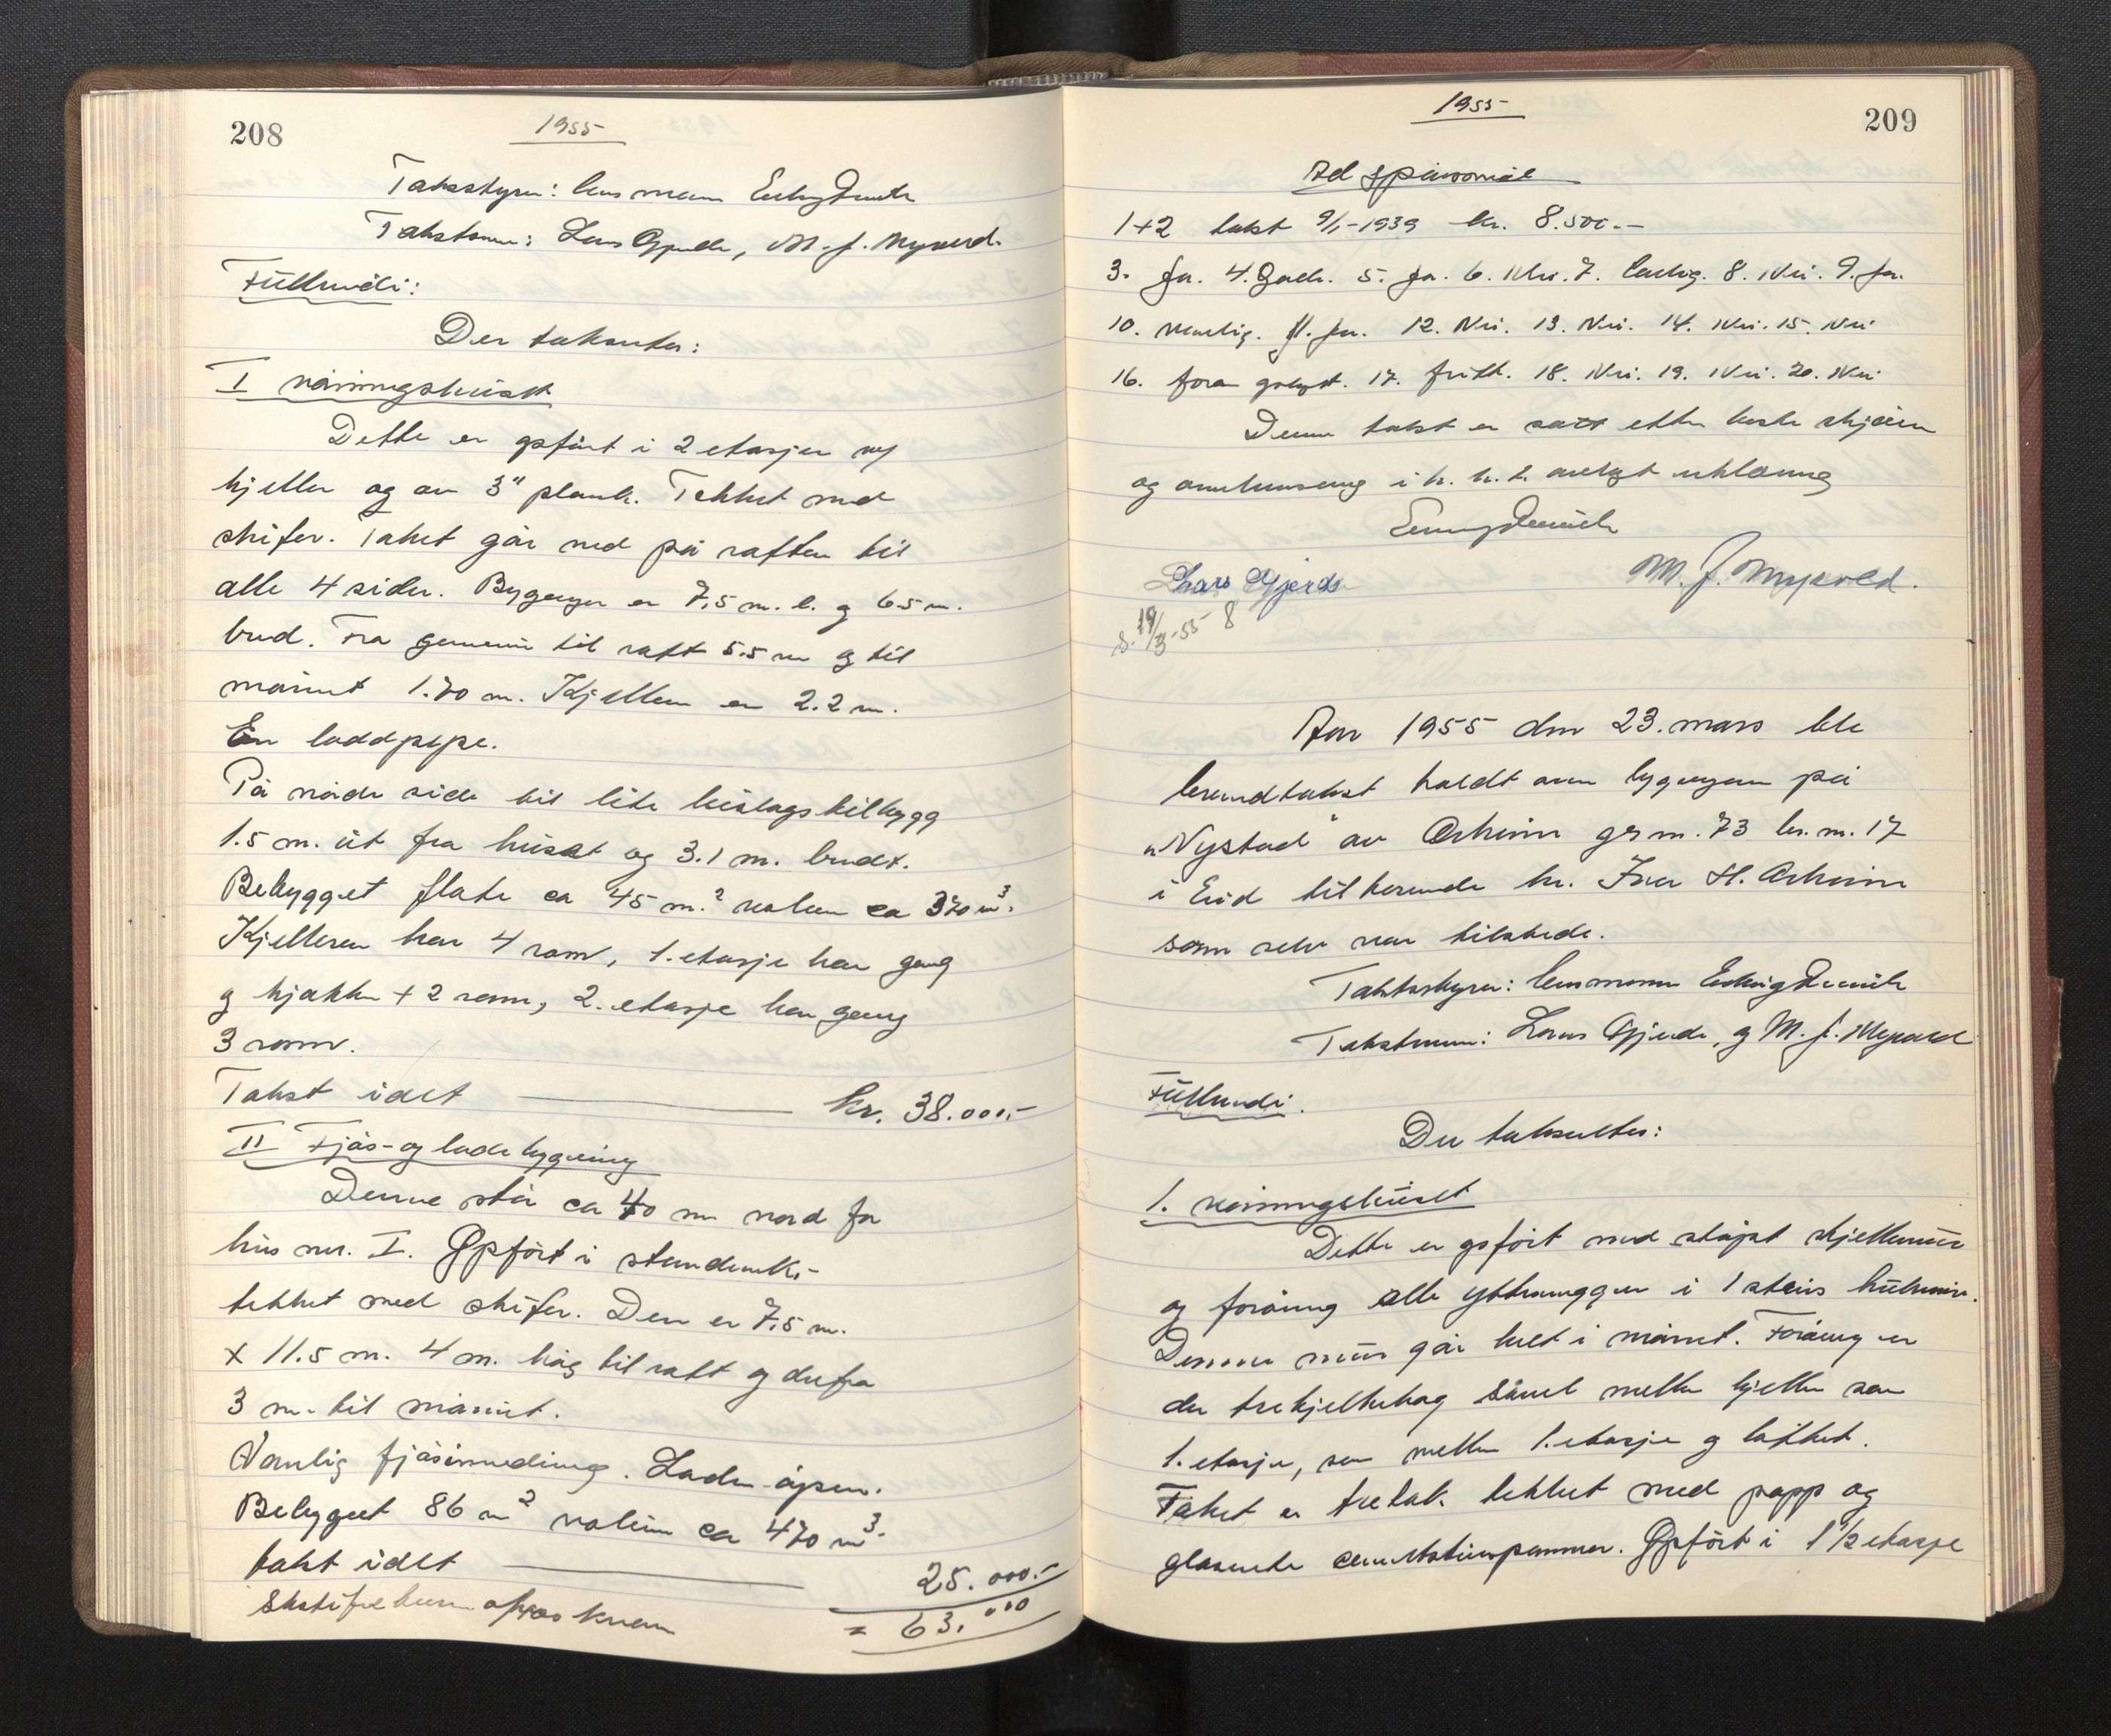 208
1955
Takststyrer: lensmann
Takstmenn: Lars Gjerde, M. J. Myrold.
Fullmakt:
Der takseres:
I våningshuset
Dette er oppført i 2 etasjer m/
kjeller og av 3" plank. Tekket med
skifer. Taket går ned på raften til
alle 4 sider. Bygningen er 7,5 m. l. og 6.5 m.
bred. Fra grunnmur til raft 5.5 m og til
mønet 1.70 m. Kjelleren er 2.2 m.
En loddpipe.
På nordre side til lite bislagstilbygg
1.5 m. ut fra huset og 3.1 m. bredt.
Bebygget flate ca 45 m.² volum ca 370 m³.
Kjelleren har 4 rom, 1. etasje har gang
og kjøkken + 2 rom, 2. etasje har gang
3 rom.
Takst idet kr. 38.000,-
II Fjøs- og ladebygning
Denne står ca 40 m nord for
hus nr. I. Oppført i stenderverk-
tekket med skifer. Den er 7,5 m.
x 11.5 m. 4 m. høg til raft og derfra
3 m. til mønet.
Vanlig fjøsinnredning. Laden åpen.
Bebygget 86 m² volum ca 470 m³.
takst idet 25.000.-
= 63.000
209
1955
Ad spørsmål
1+2 takst 9/1-1939 kr. 8.500.-
3. Ja. 4. Godt. 5. Ja. 6. Nei. 7. Lovlig. 8. Nei. 9. Ja.
10. vanlig. 11. Ja. 12. Nei. 13. Nei. 14. Nei. 15. Nei
16. foran oplyst. 17. fritt. 18. Nei. 19. Nei. 20. Nei
Denne takst er satt etter beste skjønn
og overbevisning i h. h. t. avlagt erklæring
Lars Gjerde M. J. Myrold.
19/3-55
Aar 1955 den 23. mars ble
branntakst holdt over bygningen på
"Nystad" av Årheim grn. 73 br. nr. 17
i Eid tilhørende hr. Iver H. Årheim
som selv var tilstede.
Takststyrer: lensmann
Takstmenn: Lars Gjerde, og M. J. Myrold
Fullmakt.
Der takseres:
1. våningshuset
Dette er oppført med støpt kjellermur
og forøvrig alle yttervegger i 1 steins hulmur.
Denne mur går helt i mønet. Forøvrig er
der trebjelkelag såvel mellem kjeller som
1. etasje, som mellem 1. etasje og loftet.
Taket er tretak tekket med papp og
glaserte cementstenspanner. Oppført i 1 1/2 etasje